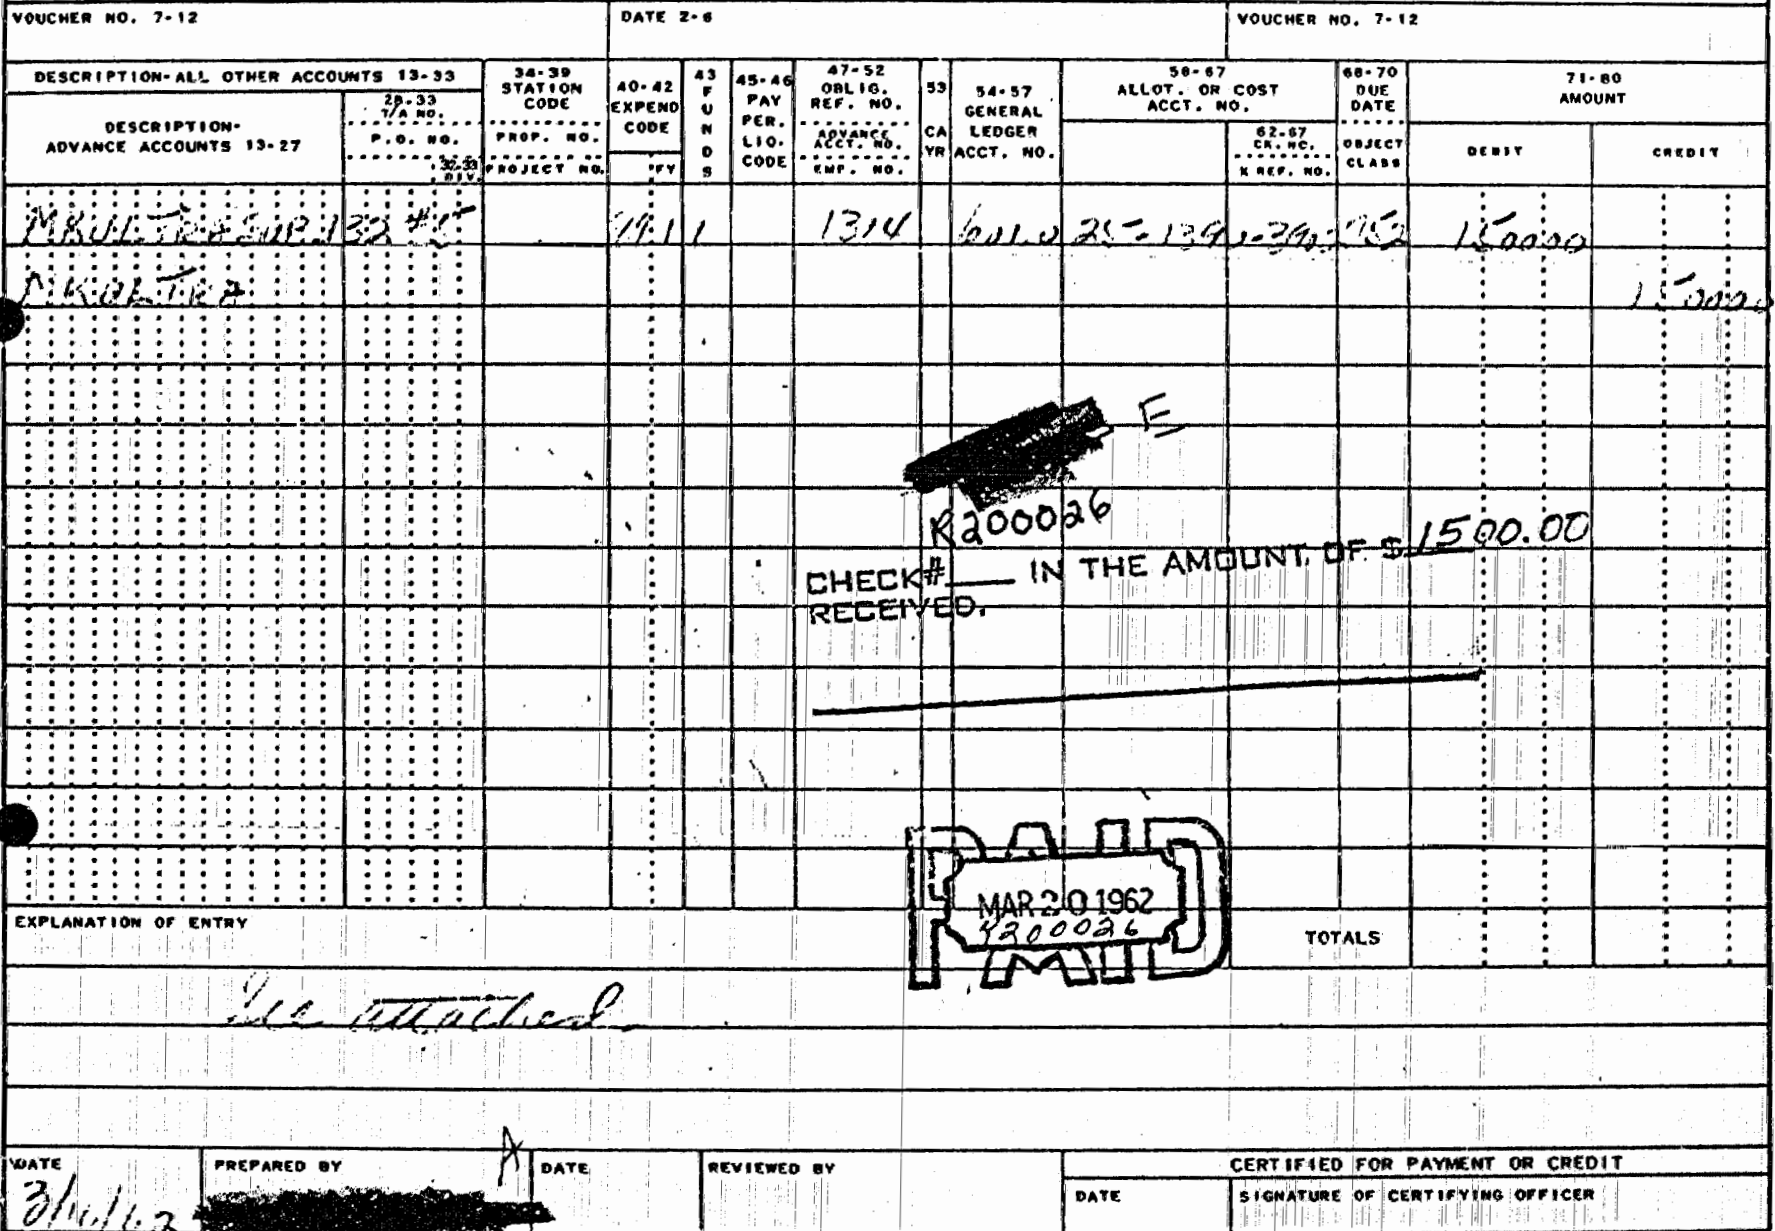 VOUCHER NO. 7-12 DATE 2-6 VOUCHER NO. 7-12
DESCRIPTION-ALL OTHER ACCOUNTS 13-33
DESCRIPTION-
ADVANCE ACCOUNTS 13-27
28-33
T/A NO.
P.O. NO.
32-33
DIV.
34-39
STATION
CODE
PROP. NO.
PROJECT NO.
40-42
EXPEND
CODE
FY
43
F
U
N
D
S
45-46
PAY
PER.
LIQ.
CODE
47-52
OBLIG.
REF. NO.
ADVANCE
ACCT. NO.
EMP. NO.
53
CA
YR
54-57
GENERAL
LEDGER
ACCT. NO.
58-67
ALLOT. OR COST
ACCT. NO.
62-67
CK. NO.
X REF. NO.
68-70
DUE
DATE
OBJECT
CLASS
71-80
AMOUNT
DEBIT
CREDIT
MKULTRA SUB. 132 #5 1314 150000
MKULTRA 150000
E
R200026
CHECK# IN THE AMOUNT OF $ 1500.00
RECEIVED.
PAID
MAR 20 1962
200026
EXPLANATION OF ENTRY
TOTALS
See attached.
DATE PREPARED BY A DATE REVIEWED BY
CERTIFIED FOR PAYMENT OR CREDIT
DATE SIGNATURE OF CERTIFYING OFFICER